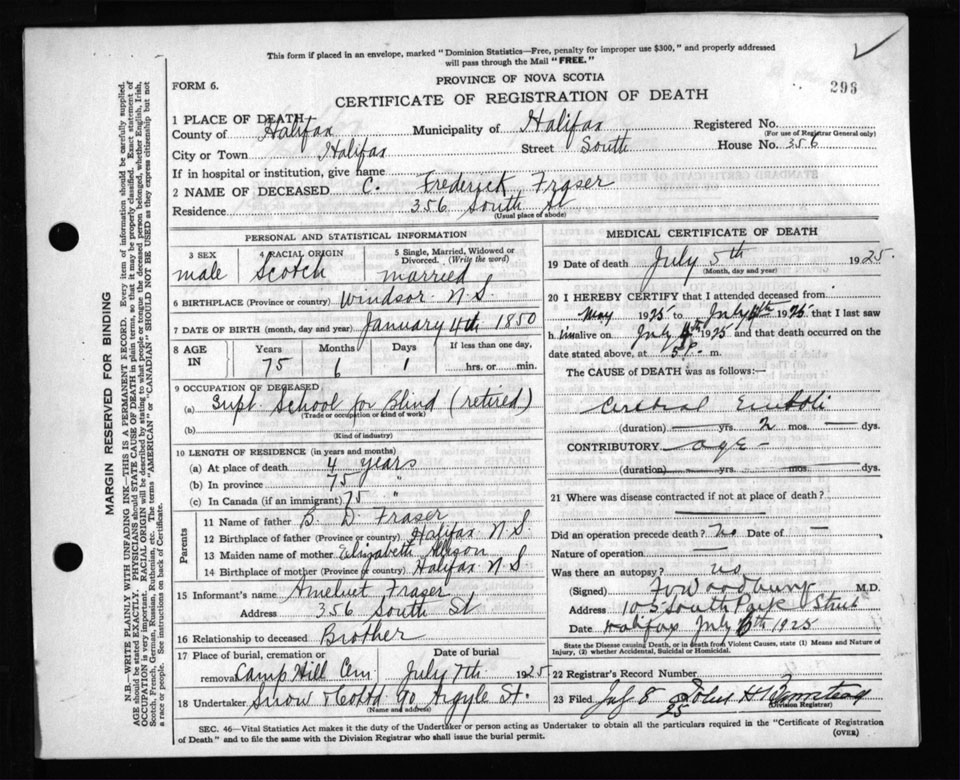 This form if placed in an envelope, marked "Dominion Statistics—Free, penalty for improper use $300," and properly addressed
will pass through the Mail "FREE."
PROVINCE OF NOVA SCOTIA
FORM 6.
296
CERTIFICATE OF REGISTRATION OF DEATH
1 PLACE OF DEATH
County of Halifax Municipality of Halifax Registered No.
(For use of Registrar General only)
City or Town Halifax Street South House No. 356
If in hospital or institution, give name
2 NAME OF DECEASED C. Frederick Fraser
Residence 356 South St
(Usual place of abode)
PERSONAL AND STATISTICAL INFORMATION
3 SEX 4 RACIAL ORIGIN 5 Single, Married, Widowed or
Divorced. (Write the word)
male Scotch married
6 BIRTHPLACE (Province or country) Windsor N.S.
7 DATE OF BIRTH (month, day and year) January 4th 1850
8 AGE IN Years Months Days If less than one day,
75 6 1 hrs. or min.
9 OCCUPATION OF DECEASED
(a) Supt. School for Blind (retired)
(Trade or occupation or kind of work)
(b)
(Kind of industry)
10 LENGTH OF RESIDENCE (in years and months)
(a) At place of death 4 years
(b) In province 75 "
(c) In Canada (if an immigrant) 75 "
Parents
11 Name of father B. D. Fraser
12 Birthplace of father (Province or country) Halifax N.S.
13 Maiden name of mother Elizabeth Allison
14 Birthplace of mother (Province or country) Halifax N S.
15 Informant's name Fraser
Address 356 South St
16 Relationship to deceased Brother
17 Place of burial, cremation or Date of burial
removal Camp Hill Cem July 7th 1925
18 Undertaker Snow & Co Ltd 90 Argyle St.
(Name and address)
MEDICAL CERTIFICATE OF DEATH
19 Date of death July 5th 1925
(Month, day and year)
20 I HEREBY CERTIFY that I attended deceased from
May 1925 to July 1925 that I last saw
h im alive on July 1925 and that death occurred on the
date stated above, at m.
The CAUSE OF DEATH was as follows:—
Cerebral Emboli
(duration) — yrs. 2 mos. — dys.
CONTRIBUTORY — age —
(duration) yrs. mos. dys.
21 Where was disease contracted if not at place of death?
Did an operation precede death? no Date of —
Nature of operation —
Was there an autopsy? no
(Signed) Woodbury M.D.
Address 105 South Park Street
Date Halifax July 6th 1925
State the Disease causing Death, or in death from Violent Causes, state (1) Means and Nature of
Injury, (2) whether Accidental, Suicidal or Homicidal.
22 Registrar's Record Number
23 Filed July 8 25 John H
(Division Registrar)
SEC. 46—Vital Statistics Act makes it the duty of the Undertaker or person acting as Undertaker to obtain all the particulars required in the "Certificate of Registration
of Death" and to file the same with the Division Registrar who shall issue the burial permit. (OVER)
MARGIN RESERVED FOR BINDING
N.B.—WRITE PLAINLY WITH UNFADING INK—THIS IS A PERMANENT RECORD. Every item of information should be carefully supplied.
AGE should be stated EXACTLY. PHYSICIANS should STATE CAUSE OF DEATH in plain terms, so that it may be properly classified. Exact statement of
OCCUPATION is very important. RACIAL ORIGIN will be described by stating to what people or tongue the deceased person belonged, whether English, Irish,
Scotch, French, German, Russian, Ruthenian, etc. The terms "AMERICAN" or "CANADIAN" SHOULD NOT BE USED as they express citizenship but not
a race or people. See instructions on back of Certificate.